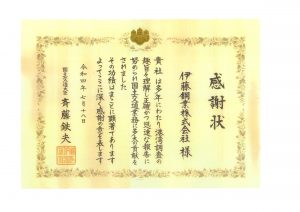 感謝状
伊藤鋼業株式会社 様
貴社は多年にわたり港湾調査の
趣旨を理解し正確かつ迅速な報告に
努められ国土交通業務に多大の貢献を
されました
その功績はまことに顕著であります
よってここに深く感謝の意を表します
令和四年七月十八日
国土交通大臣 斉藤鉄夫